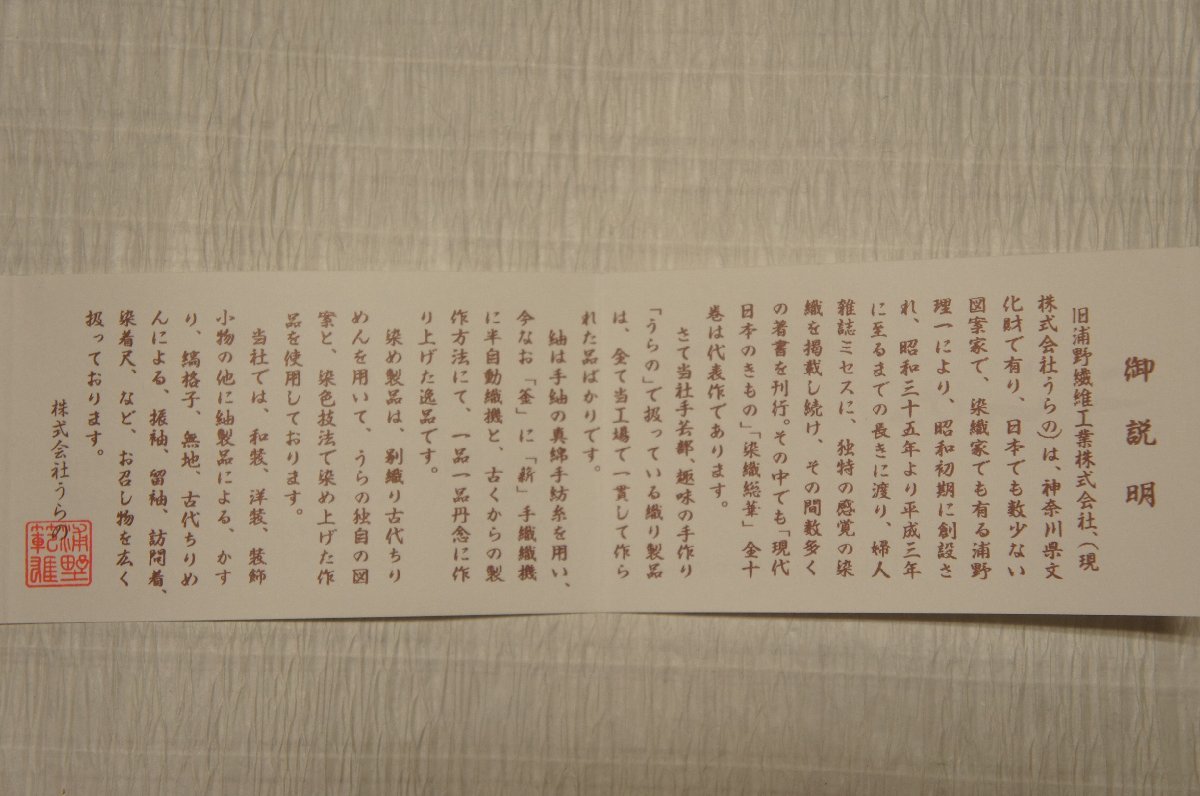 御説明
旧浦野繊維工業株式会社、（現
株式会社うらの）は、神奈川県文
化財で有り、日本でも数少ない
図案家で、染織家でも有る浦野
理一により、昭和初期に創設さ
れ、昭和三十五年より平成三年
に至るまでの長きに渡り、婦人
雑誌ミセスに、独特の感覚の染
織を掲載し続け、その間数多く
の著書を刊行。その中でも「現代
日本のきもの」「染織総華」全十
巻は代表作であります。
さて当社手芸部、趣味の手作り
「うらの」で扱っている織り製品
は、全て当工場で一貫して作ら
れた品ばかりです。
紬は手紬の真綿手紡糸を用い、
今なお「釜」に「薪」手織織機
に半自動織機と、古くからの製
作方法にて、一品一品丹念に作
り上げた逸品です。
染め製品は、別織り古代ちり
めんを用いて、うらの独自の図
案と、染色技法で染め上げた作
品を使用しております。
当社では、和装、洋装、装飾
小物の他に紬製品による、かす
り、縞格子、無地、古代ちりめ
んによる、振袖、留袖、訪問着、
染着尺、など、お召し物を広く
扱っております。
株式会社うらの
浦野
範雄